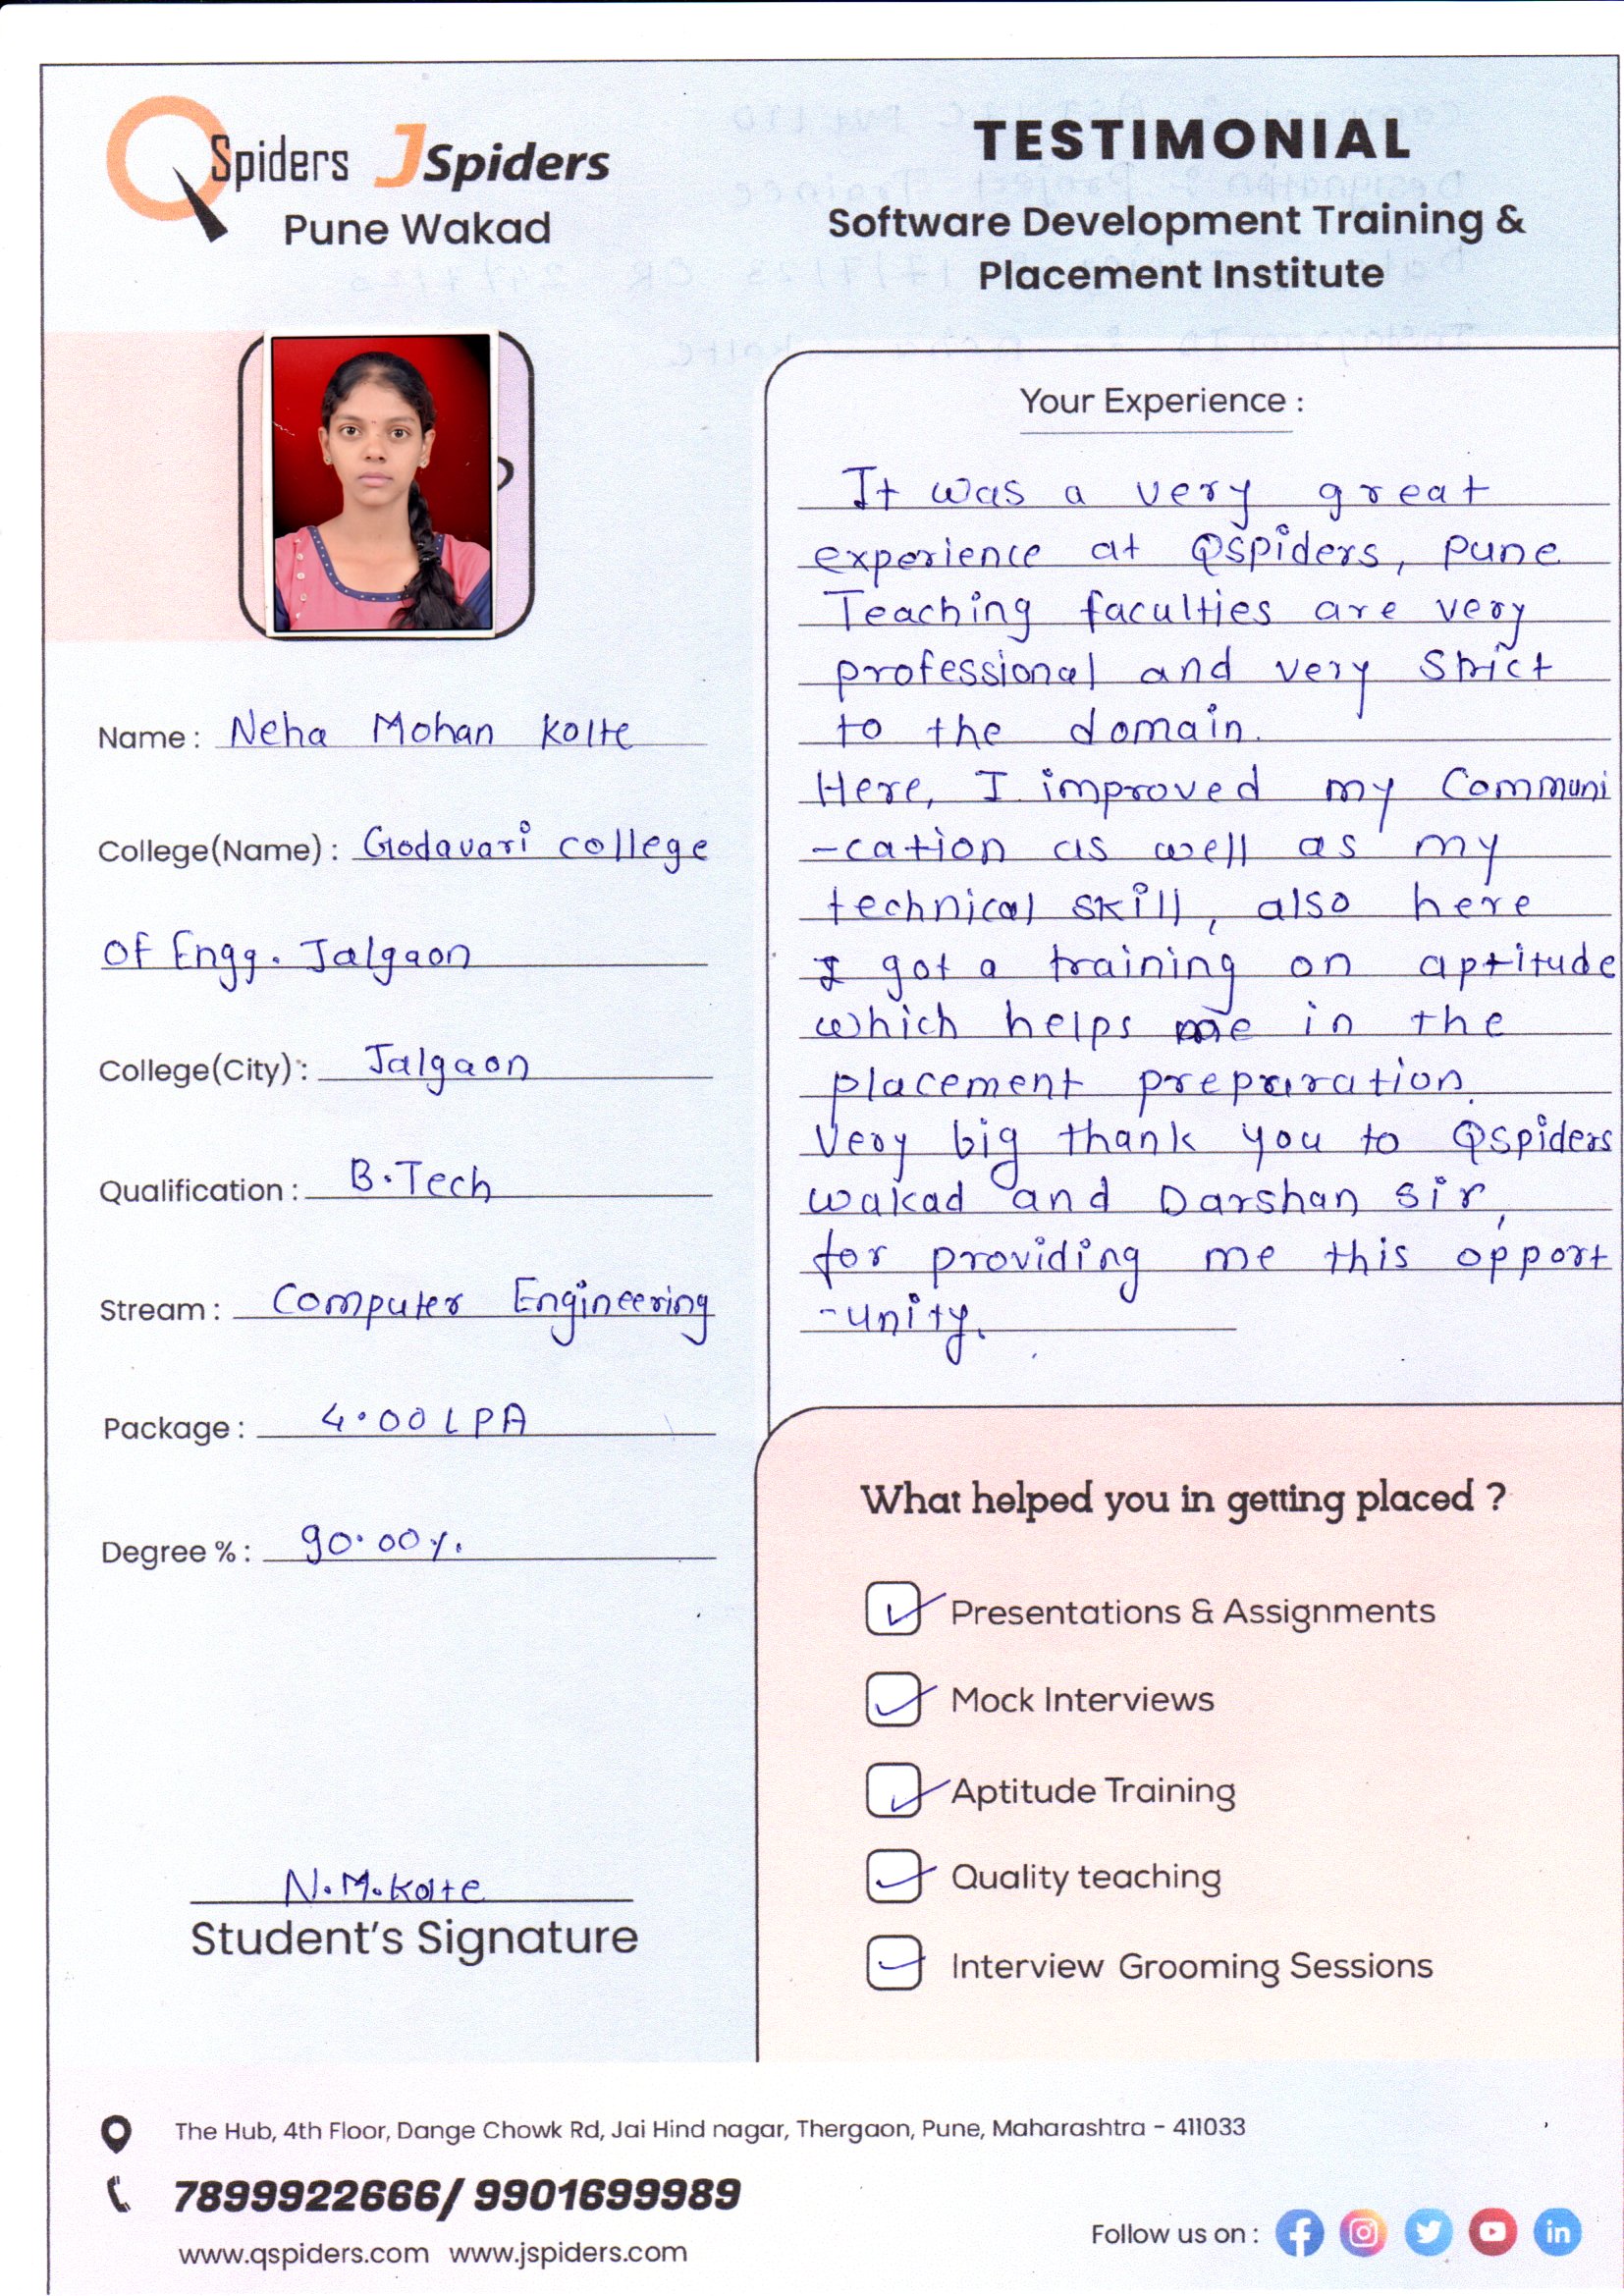 QSpiders JSpiders
Pune Wakad
TESTIMONIAL
Software Development Training &
Placement Institute
Name : Neha Mohan Kolte
College(Name) : Godavari college
Of Engg. Jalgaon
College(City) : Jalgaon
Qualification : B.Tech
Stream : Computer Engineering
Package : 4.00 LPA
Degree % : 90.00%.
N.M.Kolte
Student's Signature
Your Experience :
It was a very great
experience at Qspiders, pune
Teaching faculties are very
professional and very Strict
to the domain.
Here, I improved my Communi
-cation as well as my
technical skill, also here
I got a training on aptitude
which helps me in the
placement preparation.
Very big thank you to Qspiders
wakad and Darshan sir,
for providing me this opport
-unity.
What helped you in getting placed ?
Presentations & Assignments
Mock Interviews
Aptitude Training
Quality teaching
Interview Grooming Sessions
The Hub, 4th Floor, Dange Chowk Rd, Jai Hind nagar, Thergaon, Pune, Maharashtra - 411033
7899922666/ 9901699989
www.qspiders.com www.jspiders.com
Follow us on :